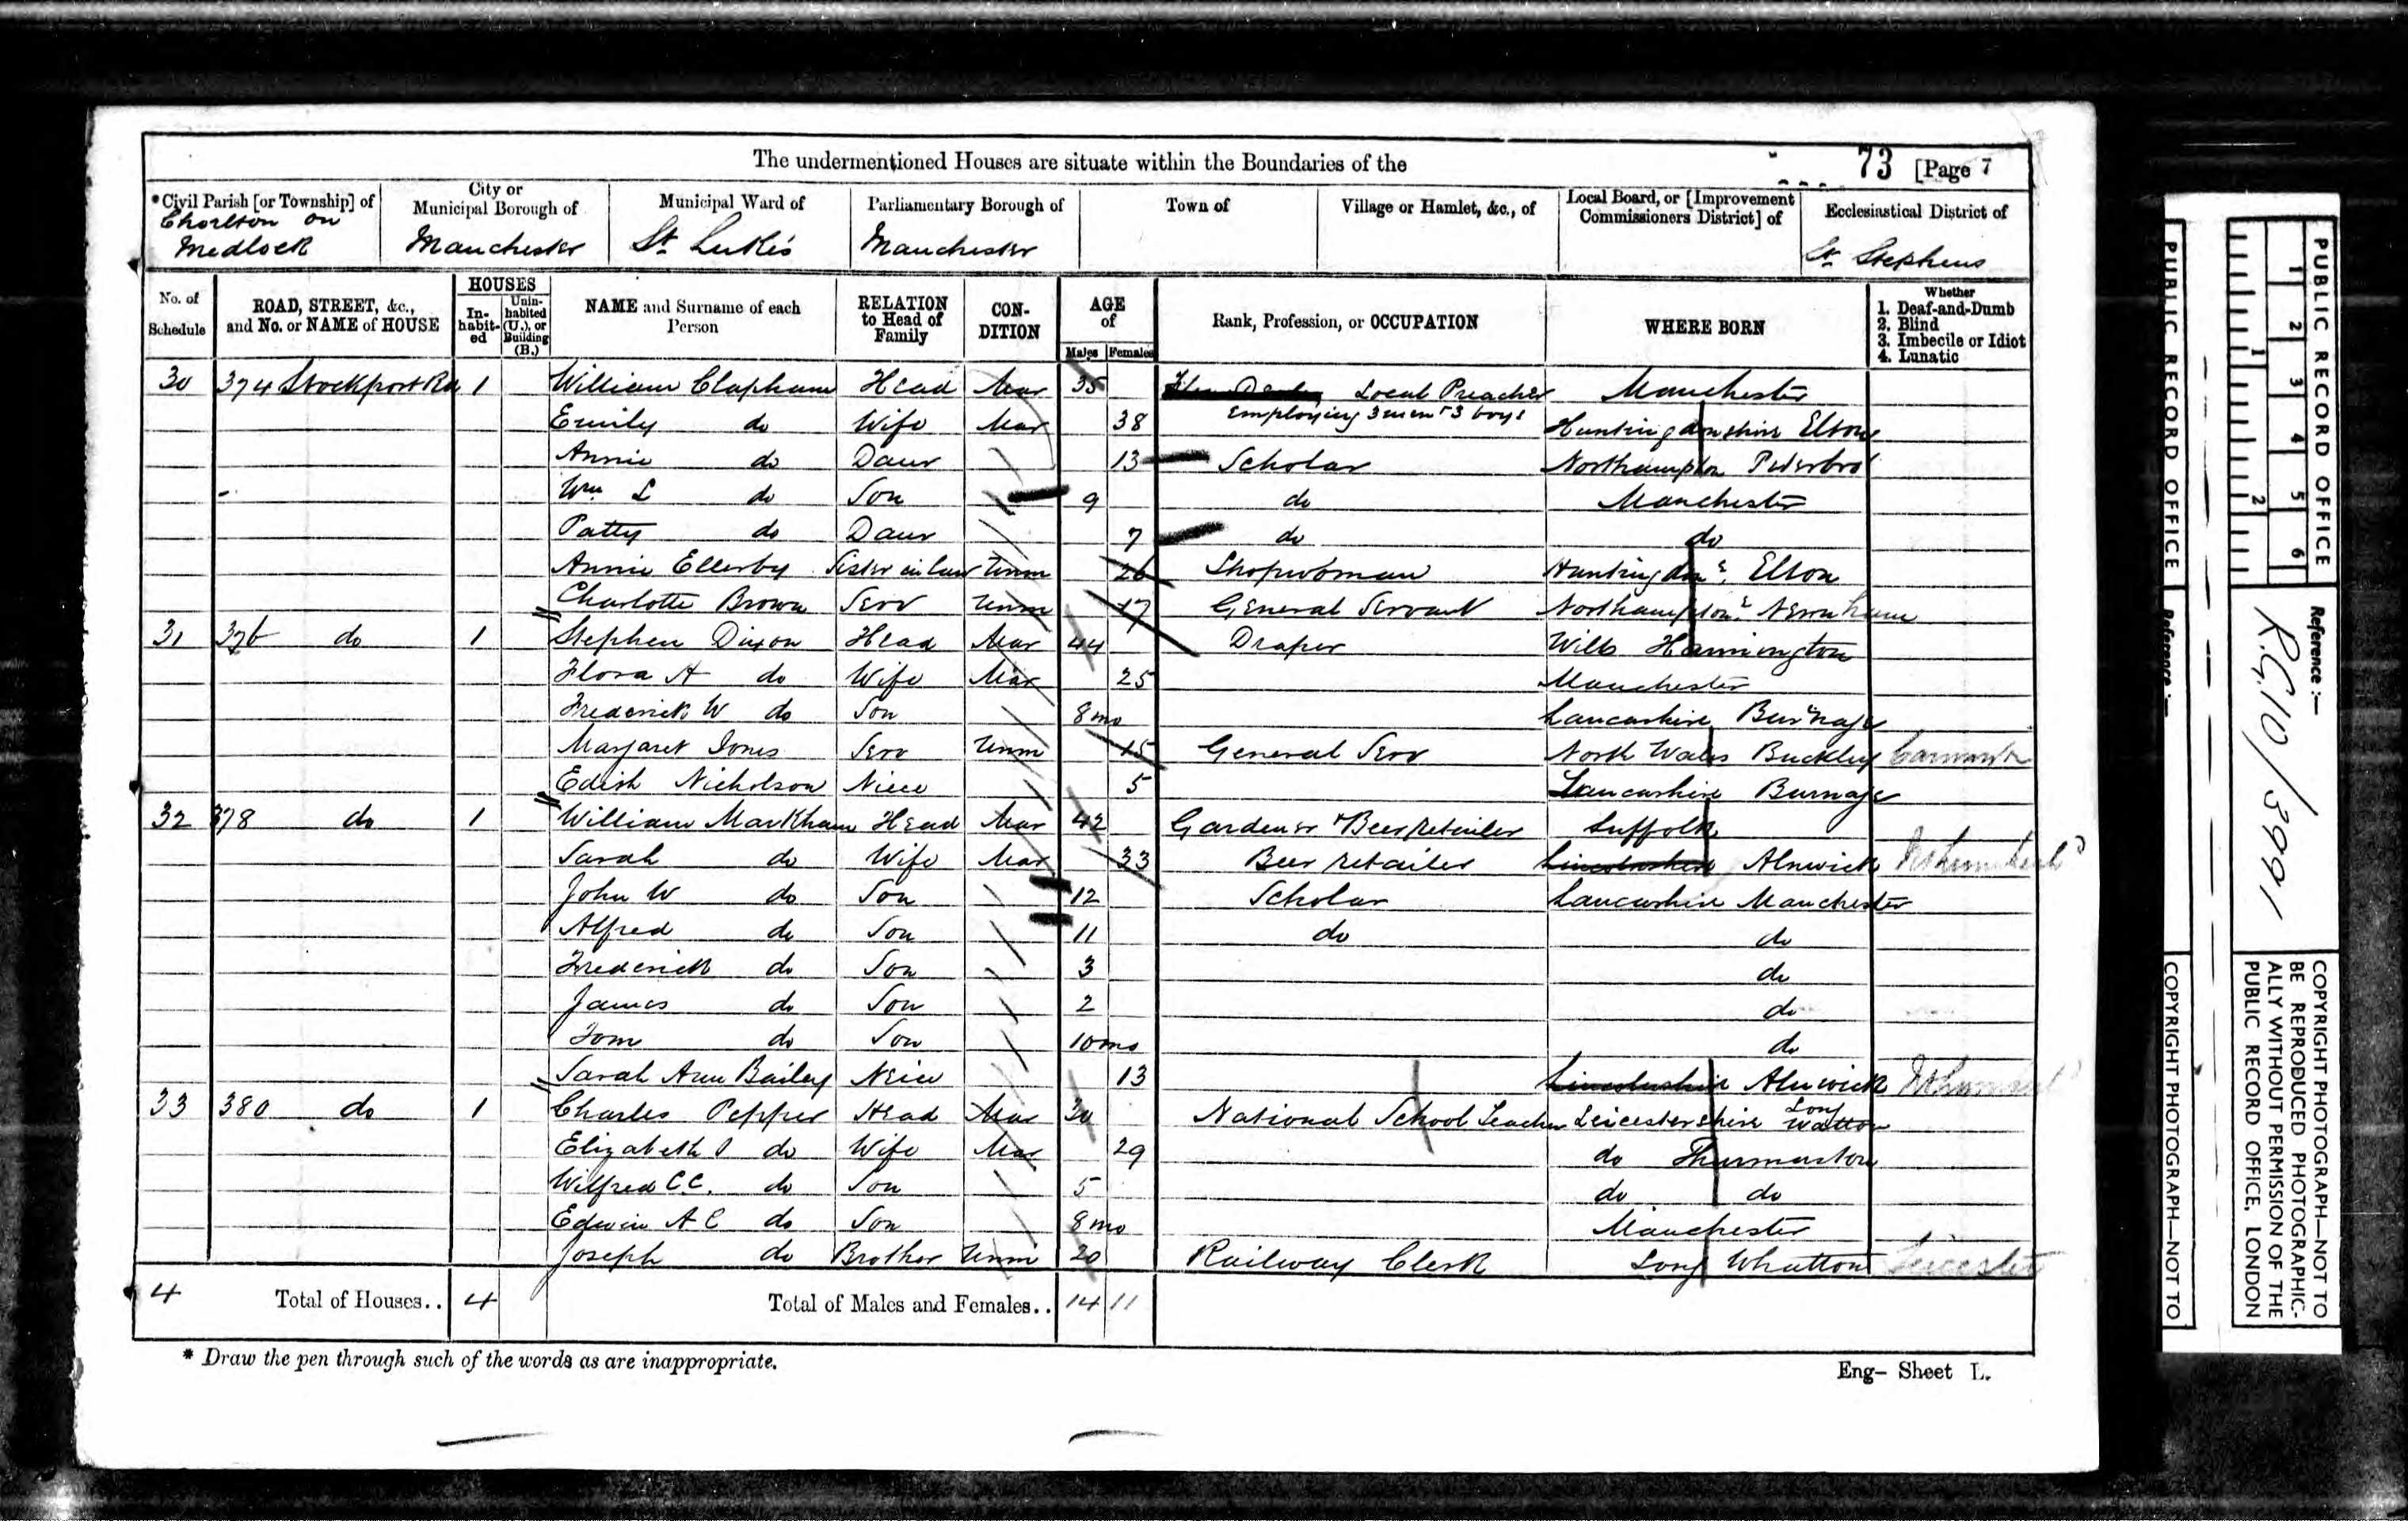 The undermentioned Houses are situate within the Boundaries of the 73 [Page 7
*Civil Parish [or Township] of Chorlton on Medlock
City or Municipal Borough of Manchester
Municipal Ward of St. Luke's
Parliamentary Borough of Manchester
Town of
Village or Hamlet, &c., of
Local Board, or [Improvement Commissioners District] of
Ecclesiastical District of St. Stephens
No. of Schedule
ROAD, STREET, &c., and No. or NAME of HOUSE
HOUSES
In-habit-ed
Unin-habited (U.), or Building (B.)
NAME and Surname of each Person
RELATION to Head of Family
CON-DITION
AGE of
Males Females
Rank, Profession, or OCCUPATION
WHERE BORN
Whether
1. Deaf-and-Dumb
2. Blind
3. Imbecile or Idiot
4. Lunatic
30 374 Stockport Rd 1 William Clapham Head Mar 35 Local Preacher Manchester
Employing 3 men + 3 boys
Emily do Wife Mar 38 Huntingdonshire Elton
Annie do Daur 13 Scholar Northampton Peterbro'
Wm L do Son 9 do Manchester
Patty do Daur 7 do do
Annie Ellerby Sister in law Unm 26 Shopwoman Huntingdons. Elton
Charlotte Brown Serv Unm 17 General Servant Northampton
31 376 do 1 Stephen Dixon Head Mar 44 Draper Wilts Hannington
Flora A do Wife Mar 25 Manchester
Frederick W do Son 8 mo Lancashire Burnage
Margaret Jones Serv Unm 15 General Serv North Wales Buckley
Edith Nicholson Niece 5 Lancashire Burnage
32 378 do 1 William Markham Head Mar 42 Gardener + Beer retailer Suffolk
Sarah do Wife Mar 33 Beer retailer Lincolnshire Alnwick
John W do Son 12 Scholar Lancashire Manchester
Alfred do Son 11 do do
Frederick do Son 3 do
James do Son 2 do
Tom do Son 10 mo do
Sarah Ann Bailey Neice 13 Lincolnshire Alnwick
33 380 do 1 Charles Pepper Head Mar 30 National School Teacher Leicestershire Long Watton
Elizabeth do Wife Mar 29 do Thurmaston
Wilfred C.C. do Son 5 do do
Edwin A C do Son 8 mo Manchester
Joseph do Brother Unm 20 Railway Clerk Long Whatton Leicester
4 Total of Houses.. 4 Total of Males and Females.. 14 11
* Draw the pen through such of the words as are inappropriate.
Eng- Sheet L.
PUBLIC RECORD OFFICE
Reference :-
COPYRIGHT PHOTOGRAPH—NOT TO
1 2 3 4 5 6
1 2
PUBLIC RECORD OFFICE
Reference :-
R.G.10/3991
COPYRIGHT PHOTOGRAPH—NOT TO
BE REPRODUCED PHOTOGRAPHIC-
ALLY WITHOUT PERMISSION OF THE
PUBLIC RECORD OFFICE, LONDON